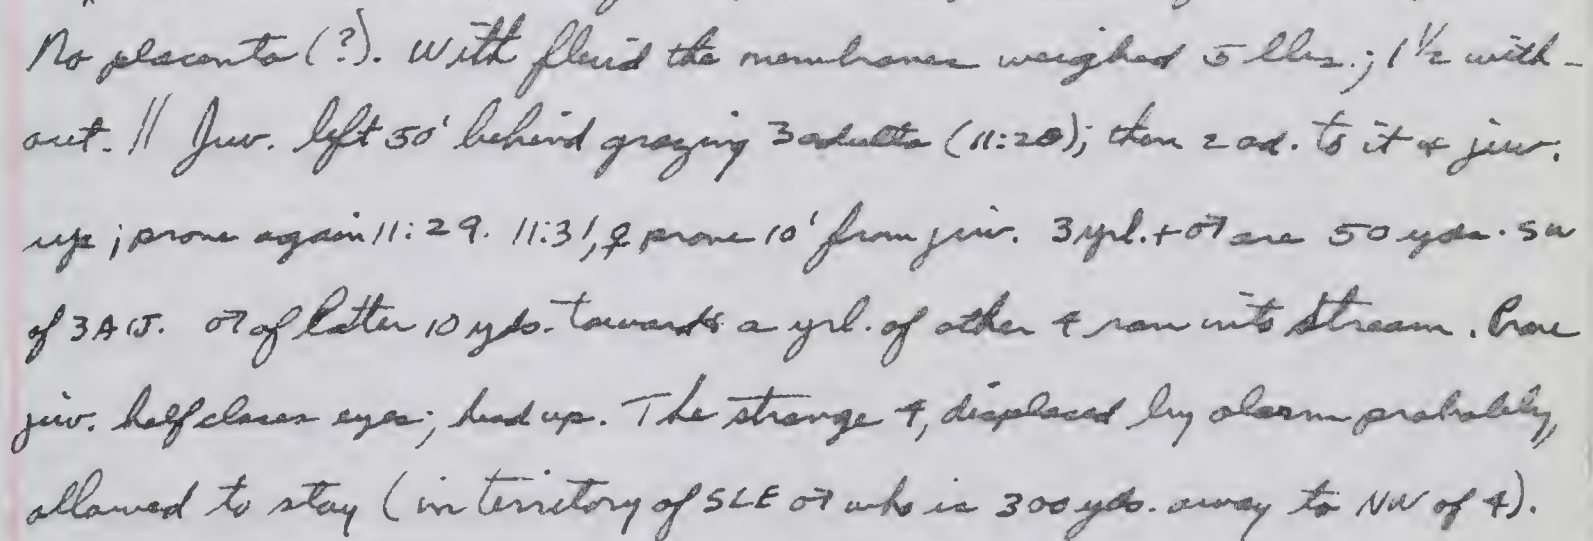 No placenta (?). With fluid the membranes weighed 5 lbs.; 1 1/2 with-
out. // Juv. left 50' behind grazing 3 adults (11:20); then 2 ad. to it & juv.
up; prone again 11:29. 11:31, ♀ prone 10' from juv. 3 yrl. + ♂ are 50 yds. SW
of 3A 1J. ♂ of latter 10 yds. towards a yrl. of other 4 ran into stream. Prone
juv. half closes eyes; head up. The strange 4, displaced by alarm probably,
allowed to stay (in territory of SLE ♂ who is 300 yds. away to NW of 4).